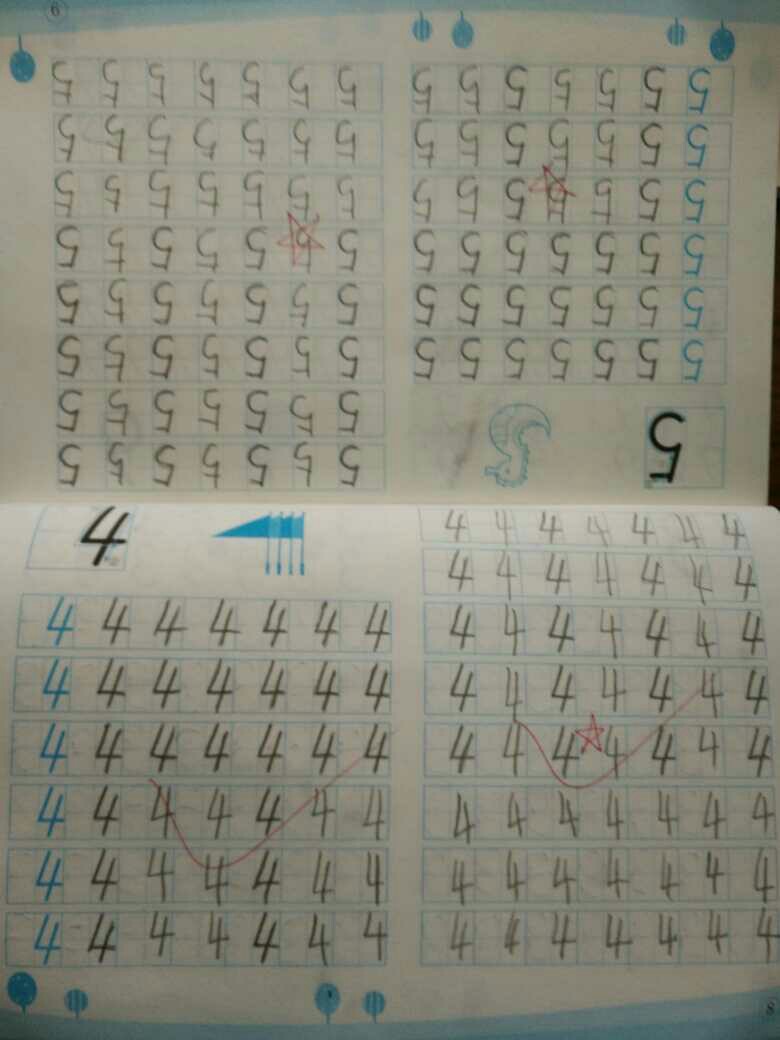 5
5 5 5 5 5 5 5
5 5 5 5 5 5 5
5 5 5 5 5 5 5
5 5 5 5 5 5 5
5 5 5 5 5 5 5
5 5 5 5 5 5 5
5 5 5 5 5 5 5
5 5 5 5 5 5 5
5 5 5 5 5 5 5
5 5 5 5 5 5 5
5 5 5 5 5 5 5
5 5 5 5 5 5 5
5 5 5 5 5 5 5
5 5 5 5 5 5 5
9
4
4 4 4 4 4 4 4
4 4 4 4 4 4 4
4 4 4 4 4 4 4
4 4 4 4 4 4 4
4 4 4 4 4 4 4
4 4 4 4 4 4 4
4 4 4 4 4 4 4
4 4 4 4 4 4 4
4 4 4 4 4 4 4
4 4 4 4 4 4 4
4 4 4 4 4 4 4
4 4 4 4 4 4 4
4 4 4 4 4 4 4
4 4 4 4 4 4 4
8